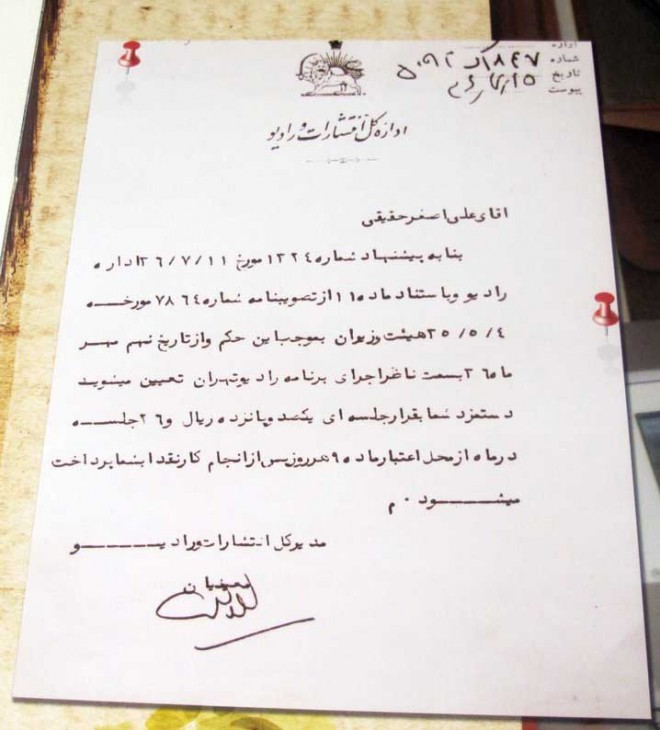 اداره
شماره ۱۸۴۷
تاریخ
پیوست
اداره کل انتشارات و رادیو
اقای علی اصغر حقیقی
بنا به پیشنهاد شماره ۱۳۲۴ مورخ ۲۶/۷/۱۱ اداره
رادیو و باستناد ماده ۱۱ از تصویبنامه شماره ۷۸۶۴ مورخه
۲۵/۵/۴ هیئت وزیران بموجب این حکم و از تاریخ نهم مهر
ماه ۲۶ بسمت ناظر اجرای برنامه رادیو تهران تعیین میشوید
دستمزد شما بقرار جلسه ای یکصد و پانزده ریال و ۲۶ جلسه
در ماه از محل اعتبار ماده ۹ هر روز پس از انجام کار نقدا بشما پرداخت
میشود ۰ م
مدیر کل انتشارات و رادیو